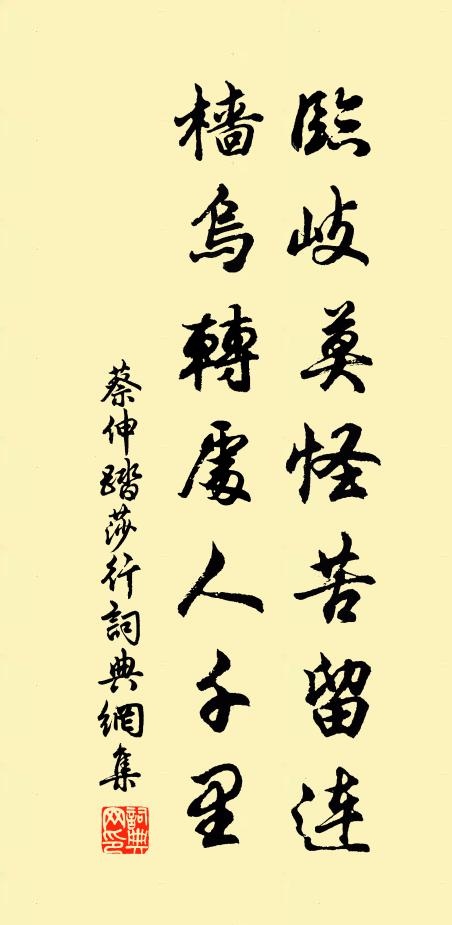 臨岐莫怪苦留連
檣烏轉處人千里
蔡伸踏莎行詞典網集
詞典网印